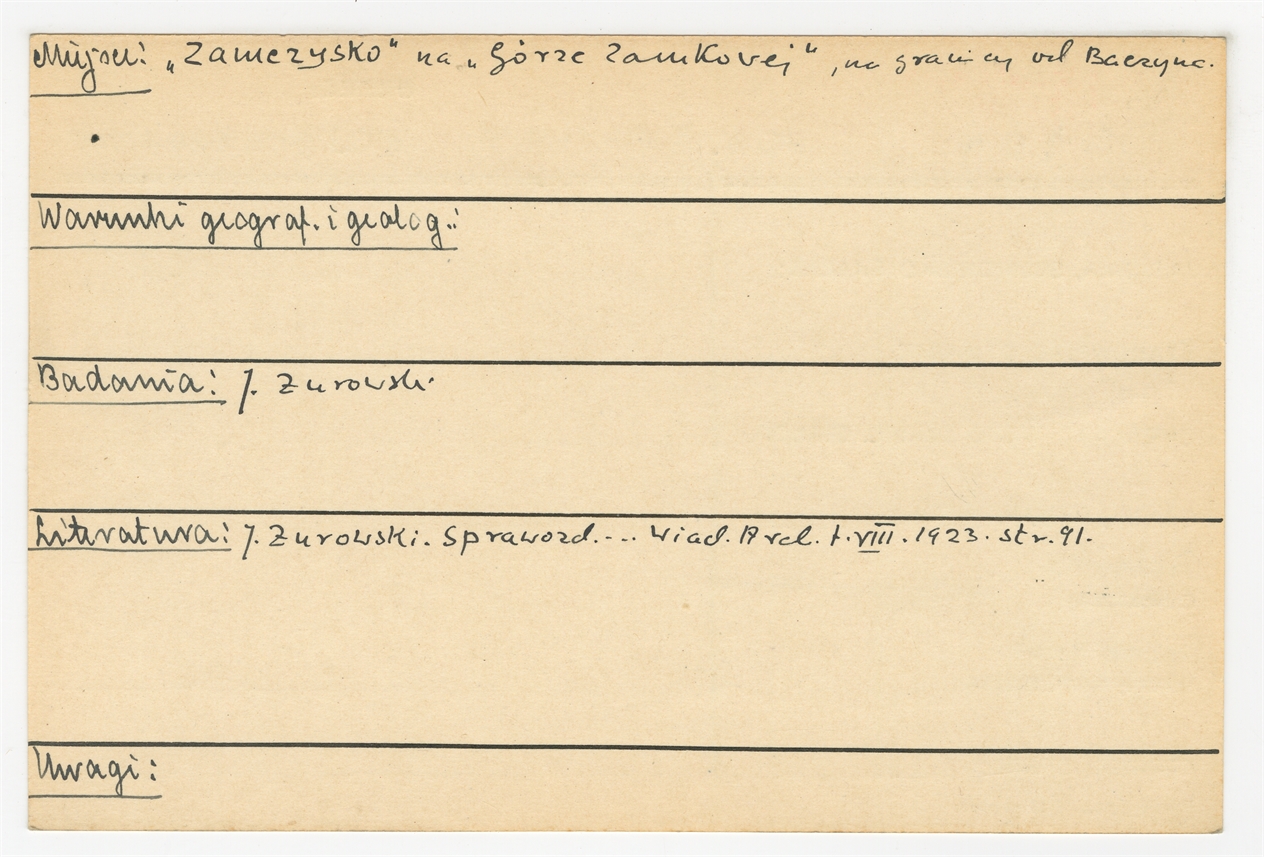 Miejsce: „Zamczysko" na „Górze Zamkowej", na granicy od Baczyna.
Warunki geograf. i geolog.:
Badania: J. Żurowski
Literatura: J. Żurowski. Sprawozd.... Wiad. Arch. t. VIII. 1923. str. 91.
Uwagi: